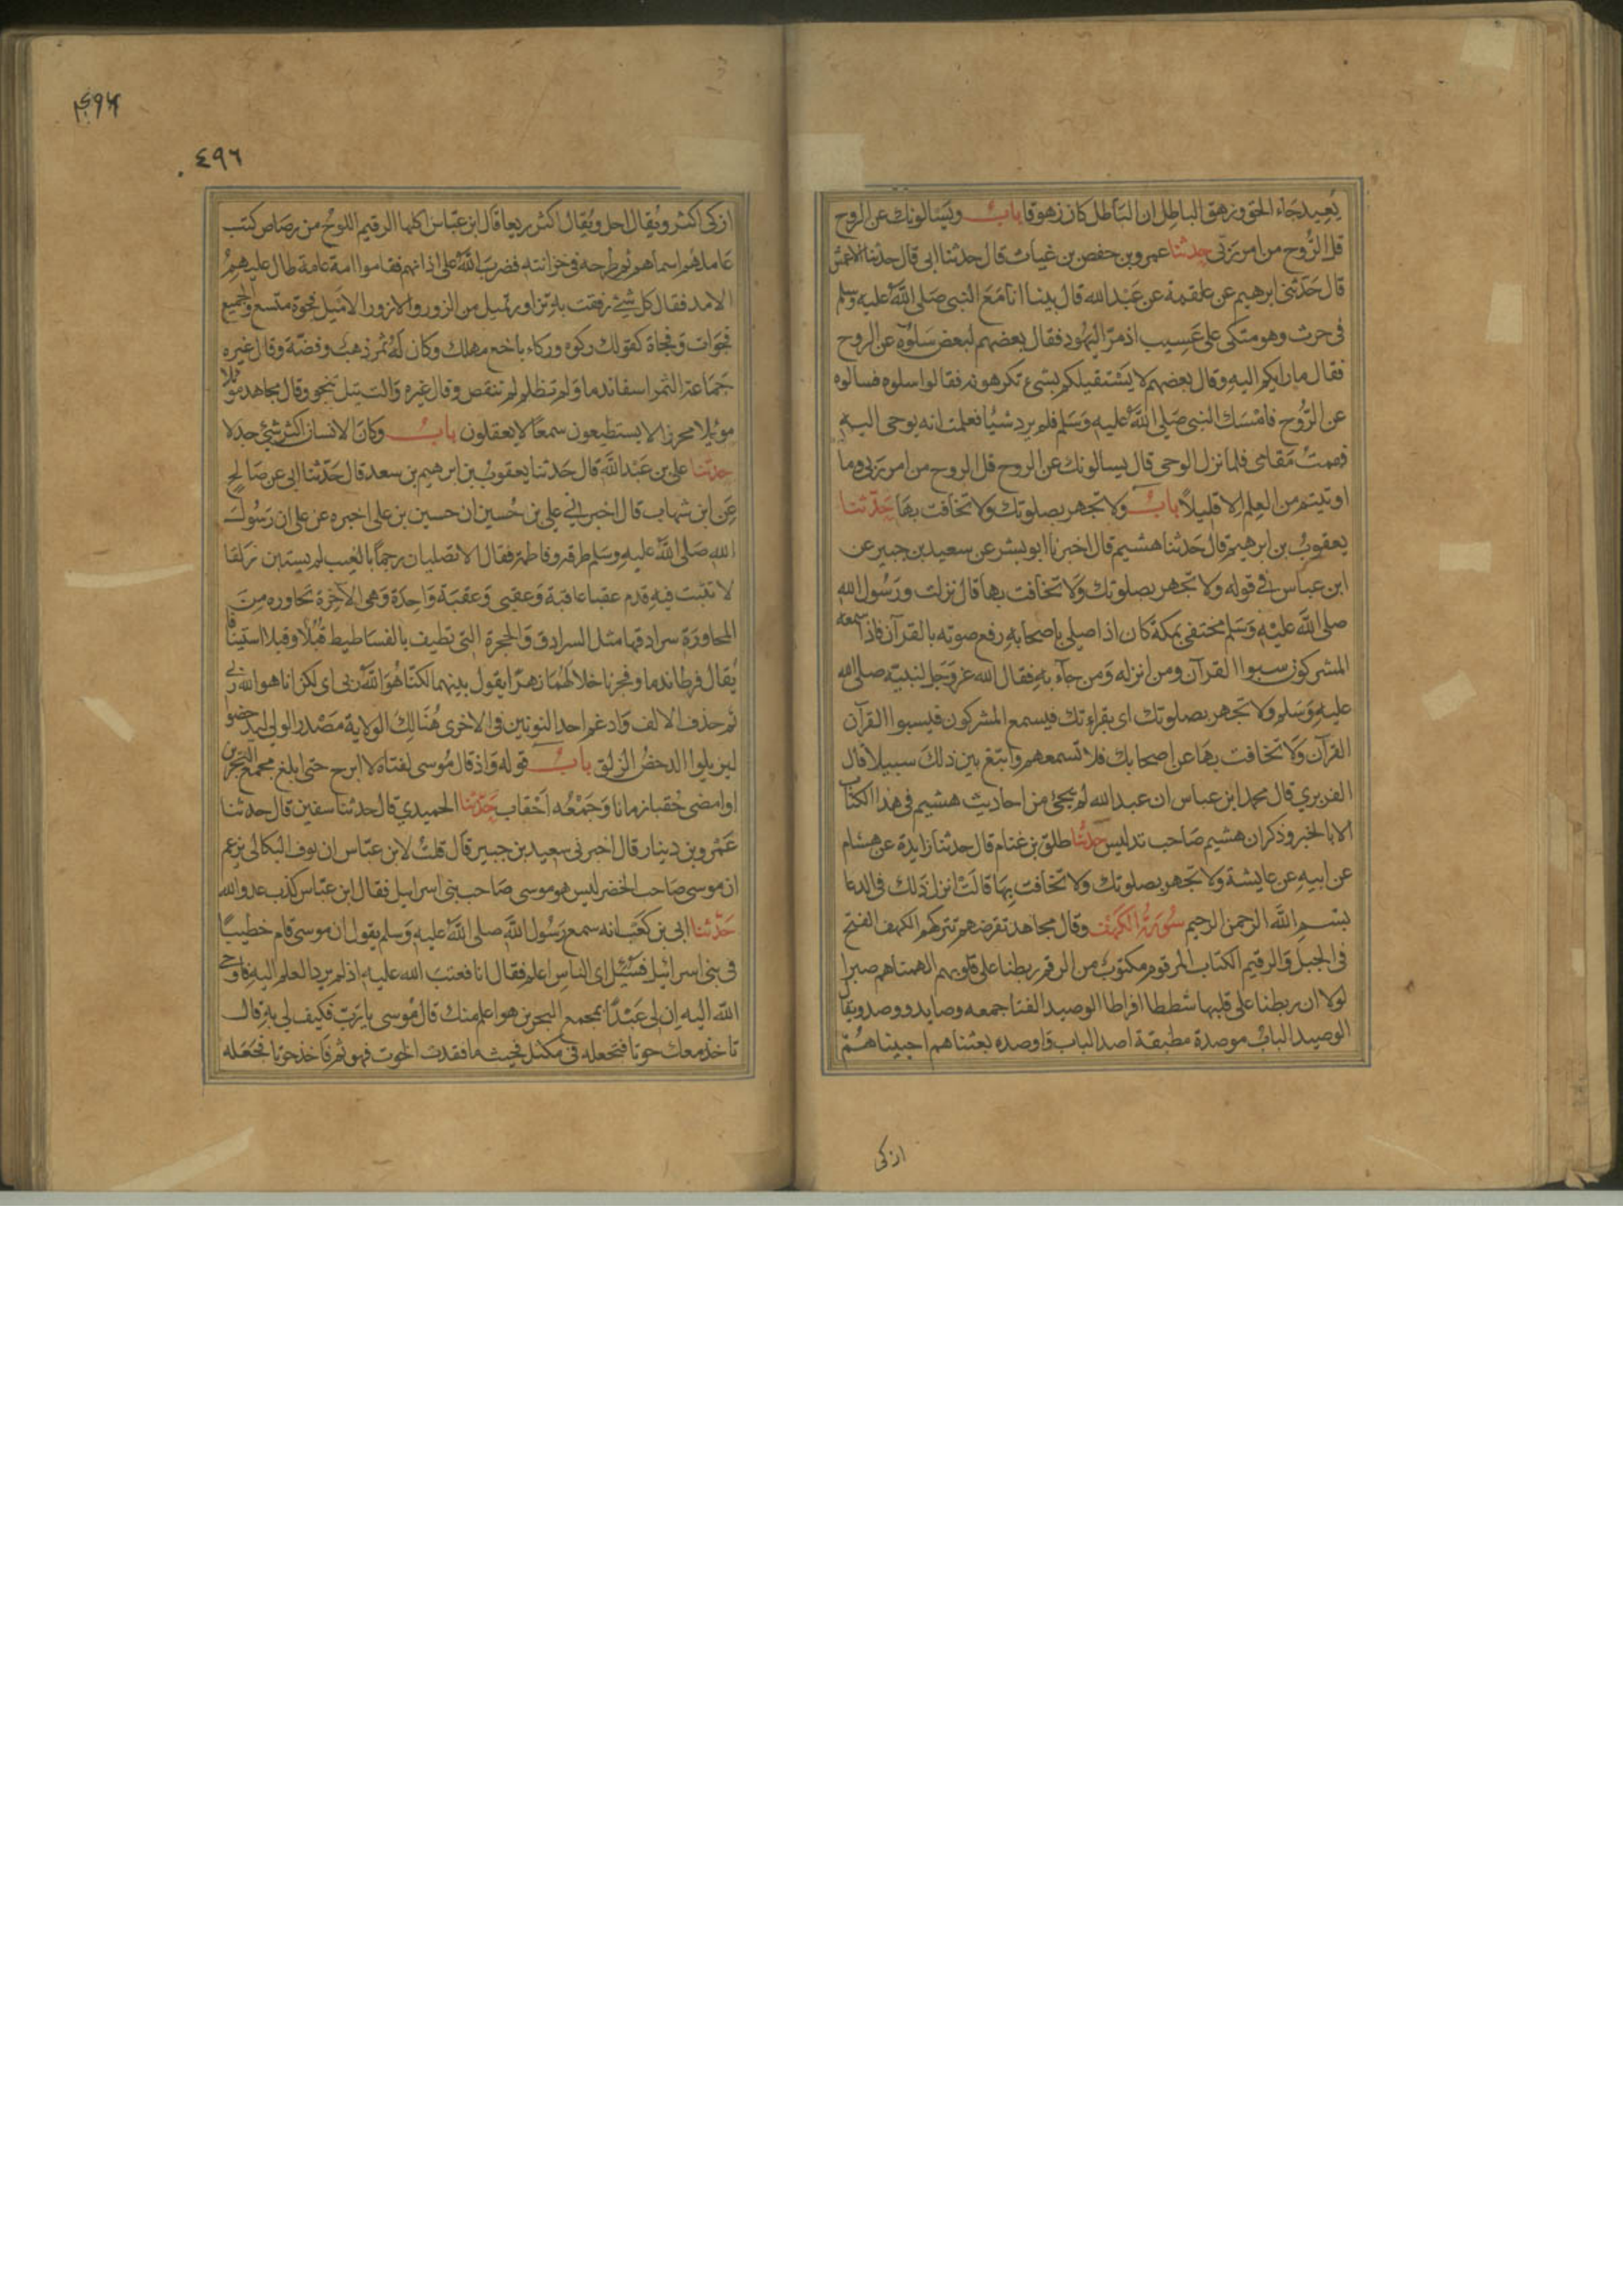 يعيد جاء الحق وزهق الباطل ان الباطل كان زهوقا باب ويسالونك عن الروح
قل الروح من امر ربى حدثنا عمرو بن حفص بن غياث قال حدثنا ابى قال حدثنا الاعمش
قال حدثنى ابرهيم عن علقمة عن عبد الله قال بينا انا مع النبى صلى الله عليه وسلم
فى حرث وهو متكى على عسيب اذ مر اليهود فقال بعضهم لبعض سلوه عن الروح
فقال ما رابكم اليه وقال بعضهم لا يستقبلكم بشىء تكرهونه فقالوا سلوه فسالوه
عن الروح فامسك النبى صلى الله عليه وسلم فلم يرد شيا فعلمت انه يوحى اليه
فقمت مقامى فلما نزل الوحى قال يسالونك عن الروح قل الروح من امر ربى وما
اوتيتم من العلم الا قليلا باب ولا تجهر بصلوتك ولا تخافت بها حدثنا
يعقوب بن ابرهيم قال حدثنا هشيم قال اخبرنا ابو بشر عن سعيد بن جبير عن
ابن عباس فى قوله ولا تجهر بصلوتك ولا تخافت بها قال نزلت ورسول الله
صلى الله عليه وسلم مختفى بمكة كان اذا صلى باصحابه رفع صوته بالقرآن فاذا سمعه
المشركون سبوا القرآن ومن انزله ومن جآء به فقال الله عز وجل لنبيه صلى الله
عليه وسلم ولا تجهر بصلوتك اى بقراءتك فيسمع المشركون فيسبوا القرآن
القرآن ولا تخافت بها عن اصحابك فلا تسمعهم وابتغ بين ذلك سبيلا قال
الفربري قال محمد ابن عباس ان عبد الله لم يجئ من احاديث هشيم فى هذا الكتاب
الا بالخبر وذكر ان هشيم صاحب تدليس حدثنا طلق بن غنام قال حدثنا زايدة عن هشام
عن ابيه عن عايشة ولا تجهر بصلوتك ولا تخافت بها قالت انزل ذلك فى الدعا
بسم الله الرحمن الرحيم سورة الكهف وقال مجاهد تقرضهم تتركهم الكهف الفتح
فى الجبل والرقيم الكتاب المرقوم مكتوب من الرقم ربطنا على قلوبهم الهمناهم صبرا
لولا ان ربطنا على قلبها شططا افراطا الوصيد الفنا جمعه وصايد ووصد ويقال
الوصيد الباب موصدة مطبقة اصد الباب واوصده بعثناهم احييناهم
ازكى
٤٩٦
ازكى اكثر ويقال احل ويقال اكثر ريعا قال ابن عباس اكلها الرقيم اللوح من رصاص كتب
عاملهم اسماهم ثم طرحه فى خزانته فضرب الله على اذانهم فقاموا امة عامة طال عليهم
الامد فقال كل شئ رفقت به تزاور تميل من الزور والازور الاميل فجوة متسع والجميع
فجوات وفجاة كقولك ركوه وركاء باخع مهلك وكان له ثمر ذهب وفضة وقال غيره
جماعة الثمر اسفا ندما ولم تظلم لم تنقص وقال غيره والت يتل تنجو وقال مجاهد موئلا
موئلا محرزا لا يستطيعون سمعا لا يعقلون باب وكان الانسان اكثر شئ جدلا
حدثنا على بن عبد الله قال حدثنا يعقوب بن ابرهيم بن سعد قال حدثنا ابى عن صالح
عن ابن شهاب قال اخبرانى على بن حسين ان حسين بن على اخبره عن على ان رسول
الله صلى الله عليه وسلم طرقه وفاطمة فقال الا تصليان رجما بالغيب لم يستبن زلقا
لا تثبت فيه قدم عقبا عاقبة وعقبى وعقبة واحدة وهى الآخرة تحاوره من
المحاورة سرادقها مثل السرادق والحجرة التى تطيف بالفساطيط قبلا وقبلا استينافا
يقال فرطا ندما وفجرنا خلالهما نهرا يقول بينهما لكنا هو الله ربى اى لكن انا هو الله ربى
ثم حذف الالف وادغم احد النونين فى الاخرى هنالك الولاية مصدر الولى ليدحضوا
ليزيلوا الدحض الزلق باب قوله واذ قال موسى لفتاه لا ابرح حتى ابلغ مجمع البحرين
او امضى حقبا زمانا وجمعه احقاب حدثنا الحميدي قال حدثنا سفين قال حدثنا
عمرو بن دينار قال اخبرنى سعيد بن جبير قال قلت لابن عباس ان نوف البكالى يزعم
ان موسى صاحب الخضر ليس هو موسى صاحب بنى اسرايل فقال ابن عباس كذب عدو الله
حدثنا ابى بن كعب انه سمع رسول الله صلى الله عليه وسلم يقول ان موسى قام خطيبا
فى بنى اسرائيل فسئل اى الناس اعلم فقال انا فعتب الله عليه اذ لم يرد العلم اليه فاوحى
الله اليه ان لى عبدا بمجمع البحرين هو اعلم منك قال موسى يا رب فكيف لى به قال
تاخذ معك حوتا فتجعله فى مكتل فحيث ما فقدت الحوت فهو ثم فاخذ حوتا فجعله